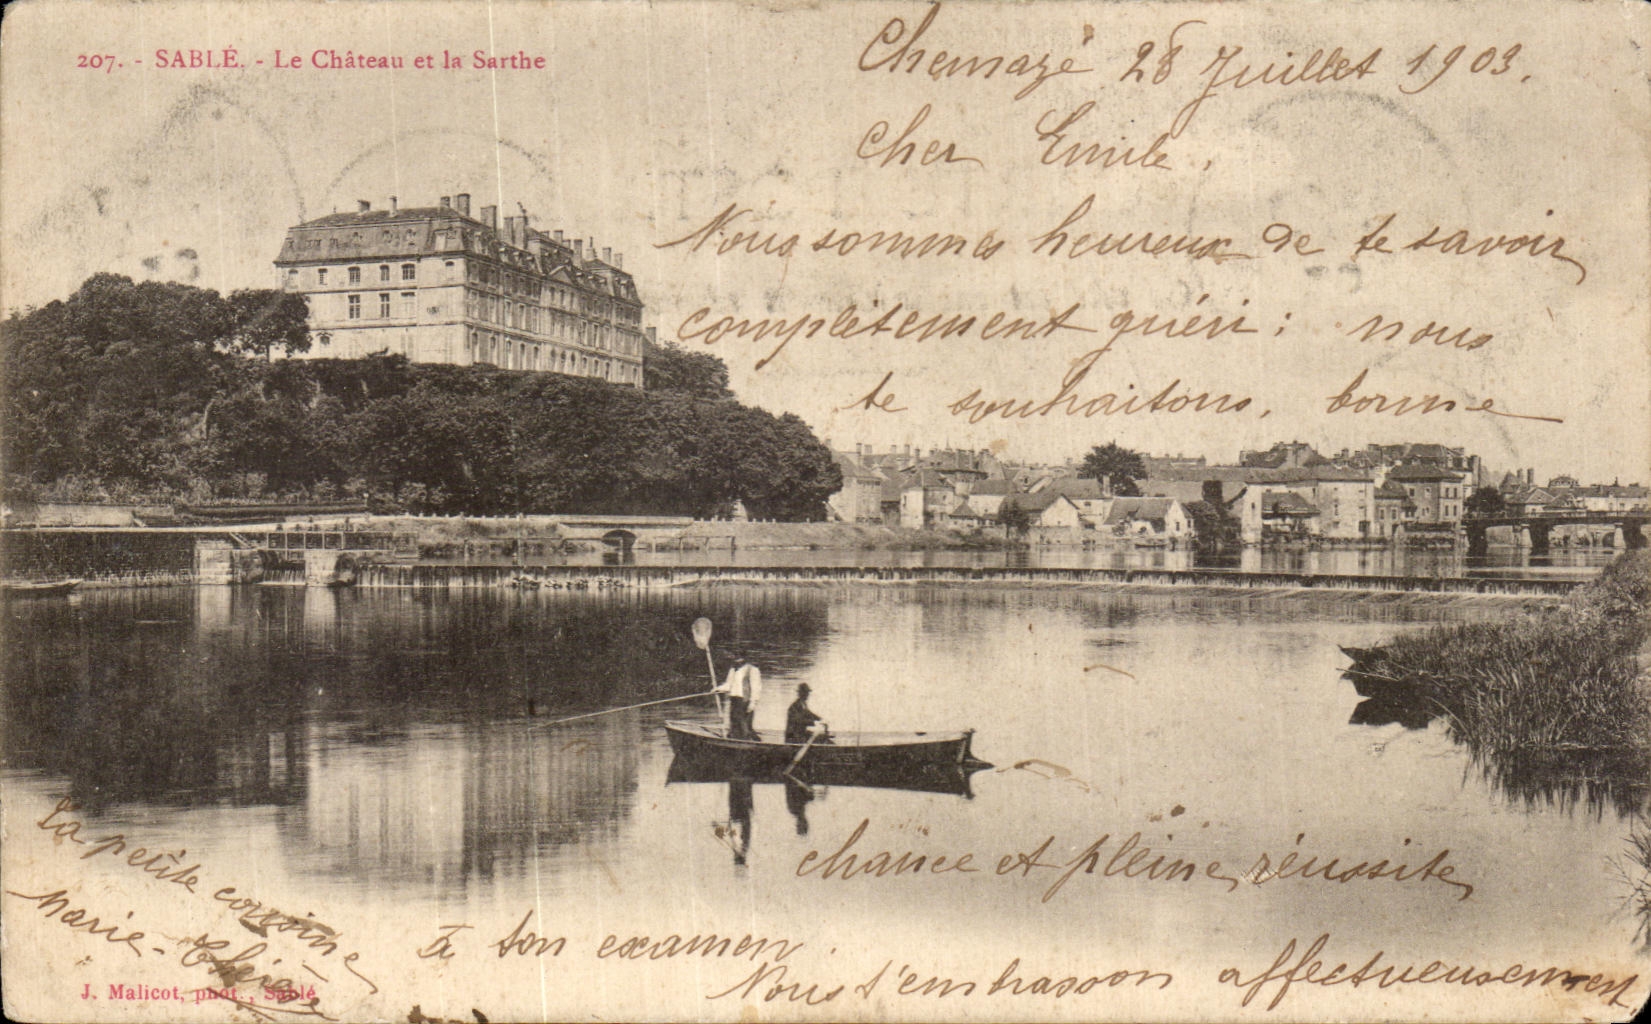 207. - SABLÉ. - Le Château et la Sarthe
Chemazé 28 Juillet 1903.
Cher Emile,
Nous sommes heureux de te savoir
complètement guéri ; nous
te souhaitons, bonne
chance et pleine, réussite,
à ton examen.
Nous t'embrasson affectueusement
La petite cousine
Marie-Thérèse
J. Malicot, phot., Sablé